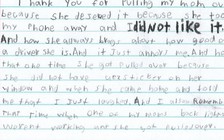 I thank you for pulling my mom over
because she deserved it because she took
my phone away and I did not like it.
And how she always brags about how good of
a driver she is and it just annoys me. And how
that one time she got pulled over because
she did not have versticker on her
window and when she came home and told
me that I just laughed. And I also remember
that time when one of my moms back